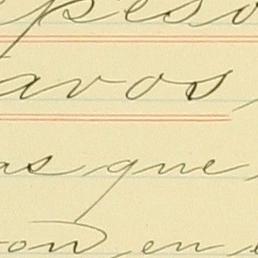 peso
avos,
as que
on, en